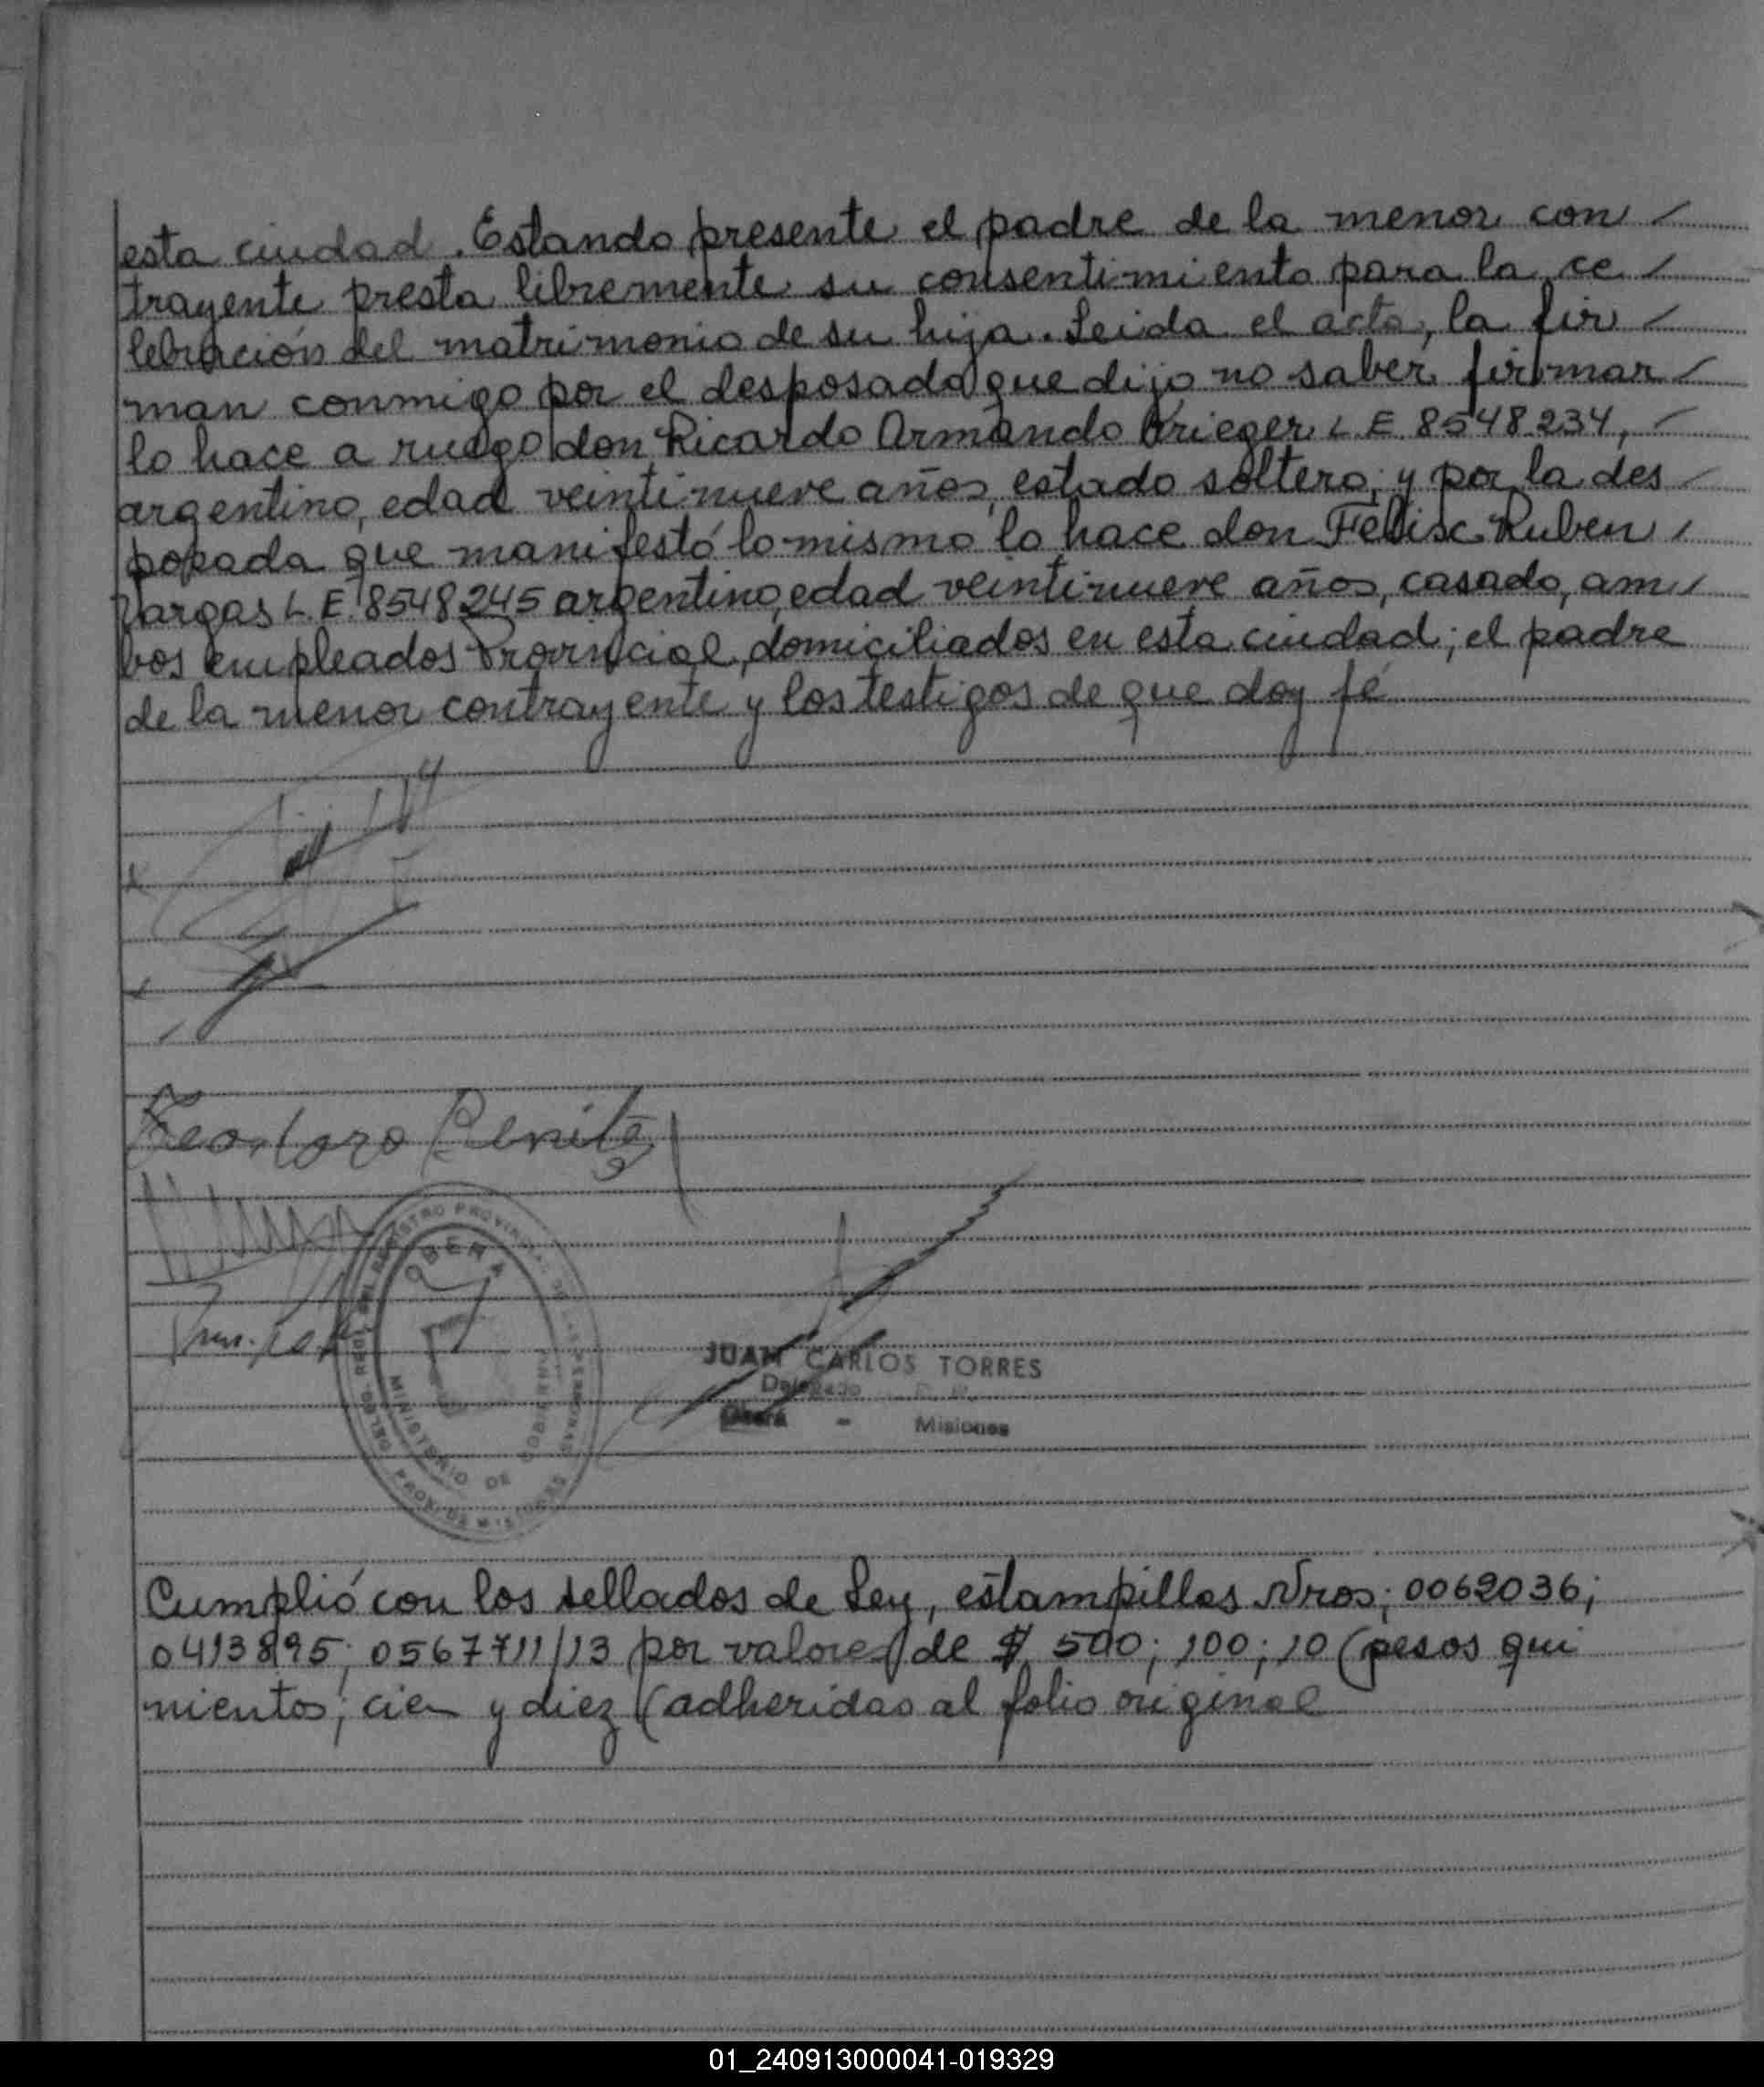 esta ciudad. Estando presente el padre de la menor con /
trayente presta libremente su consentimiento para la ce /
lebración del matrimonio de su hija. Leida el acta, la fir /
man conmigo por el desposado que dijo no saber firmar /
lo hace a ruego don Ricardo Armando Krieger L E 8548234, /
argentino, edad veintinueve años, estado soltero; y por la des /
posada que manifestó lo mismo lo hace don Felix Ruben /
Vargas L.E. 8548245 argentino, edad veintinueve años, casado, am /
bos empleados Provincial, domiciliados en esta ciudad; el padre
de la menor contrayente y los testigos de que doy fé
Benitez
REGISTRO PROVINCIAL DE LAS PERSONAS
OBERA
MINISTERIO DE GOBIERNO
PROV. DE MISIONES
JUAN CARLOS TORRES
Delegado
Oberá - Misiones
Cumplió con los sellados de Ley, estampillas Nros; 0062036;
0413895; 0567711/13 por valores de $ 500; 100; 10 (pesos qui
nientos; cien y diez (adheridas al folio original
01_240913000041-019329